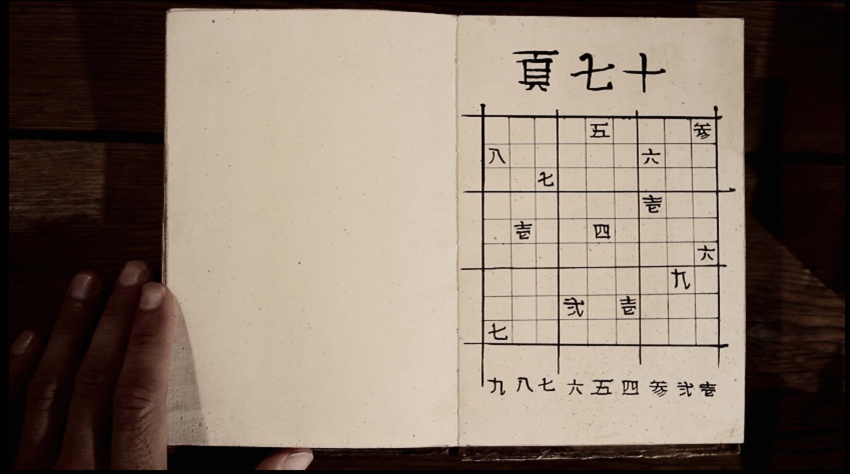 頁七十
五 参
八 六
七
壱
壱 四
六
九
弐 壱
七
九八七六五四参弐壱